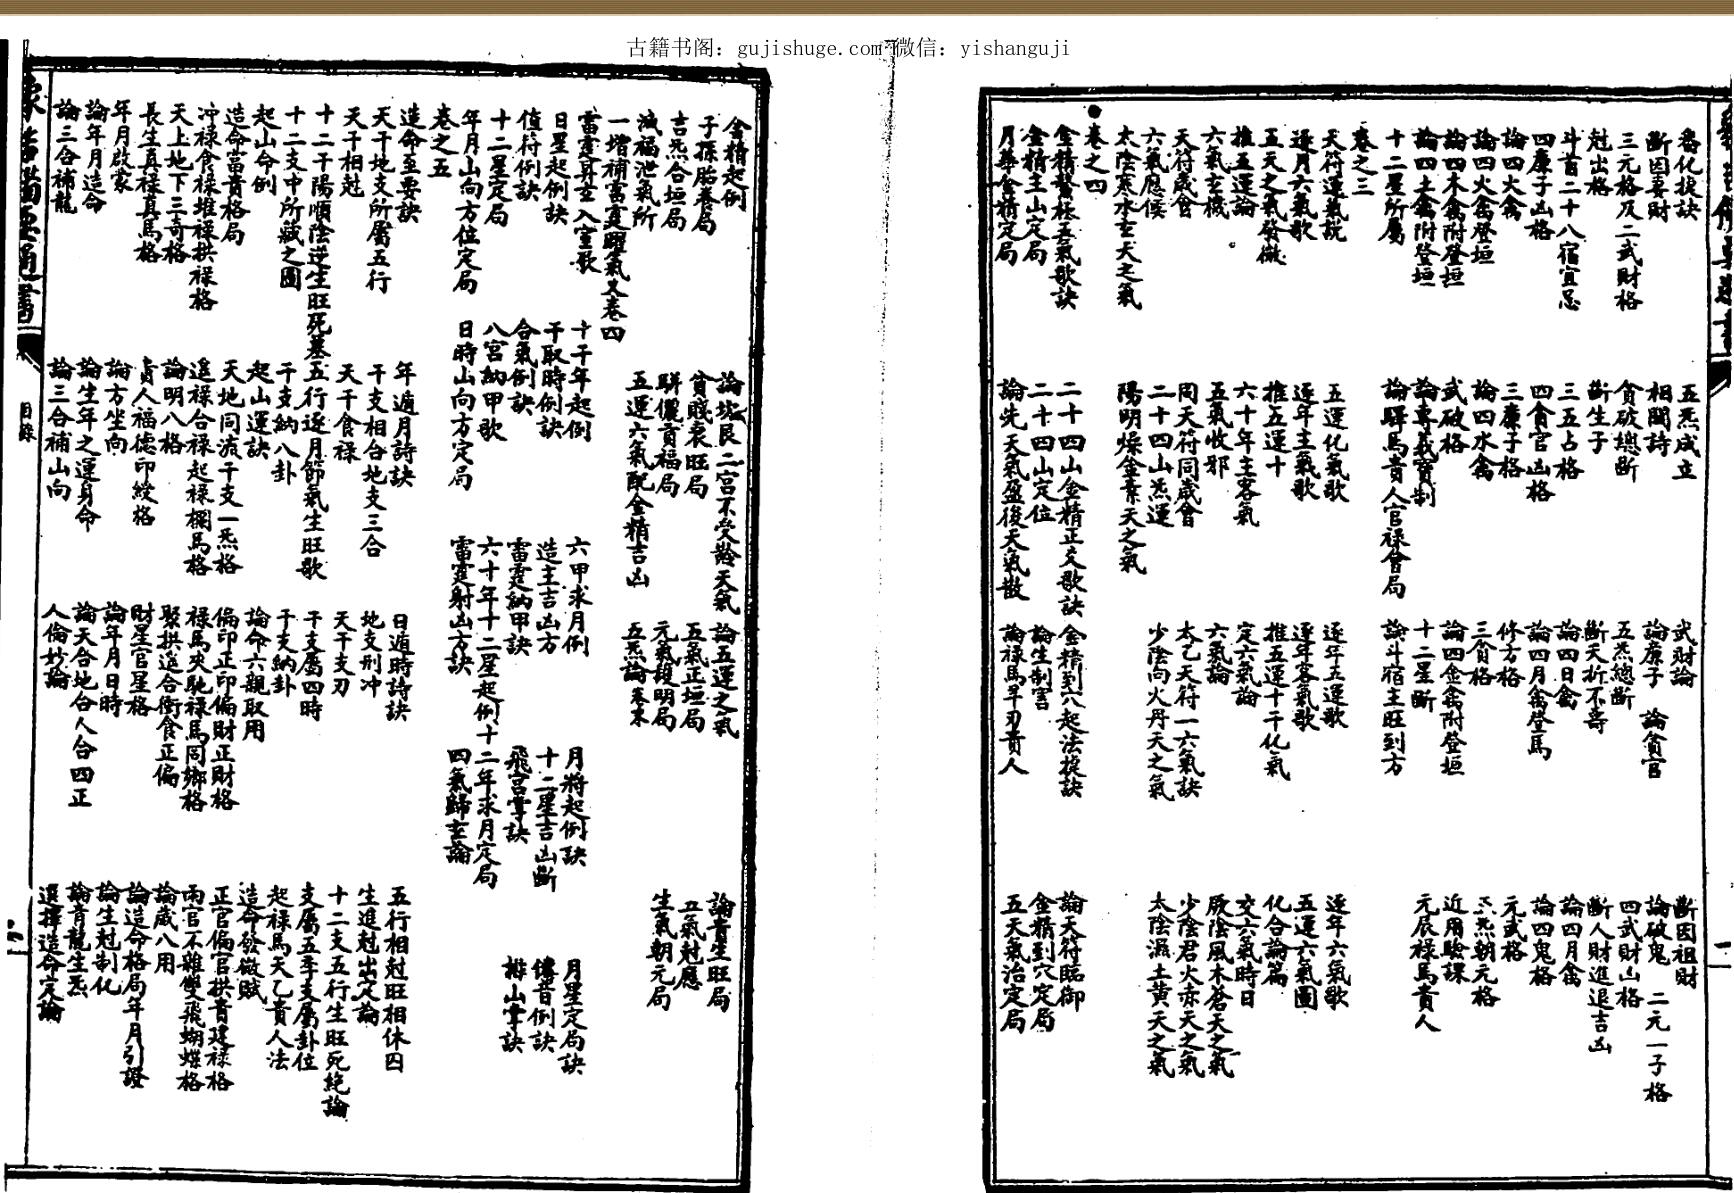 古籍书阁：gujishuge.com 微信：yishanguji
斷因妻財 相鬭詩 論廉子 論貪官 論破鬼 二元一子格
三元格及二武財格 貪破總斷 五炁總斷 四武財凶格
尅出格 斷生子 斷夭折不壽 斷人財進退吉凶
斗首二十八宿宜忌 三五占格 論四日禽 論四月禽
四廉子凶格 四貪官凶格 論四月禽登馬 論四鬼格
論四火禽 三廉子格 修方格 元武格
論四火禽登垣 論四水禽 三貪格 炁朝元格
論四木禽附登垣 武破格 論四金禽附登垣 近用驗課
論四土禽附登垣 論專義寶制 十二星斷 元辰禄馬貴人
十二星所屬 論驛馬貴人官禄會局 論斗宿主旺到方
卷之三
天符運氣説 五運化氣歌 逐年五運歌 逐年六氣歌
逐月六氣歌 逐年主氣歌 逐年客氣歌 五運六氣圖
五天之氣發微 推五運十 推五運十干化氣 化合論篇
推五運論 六十年主客氣 定六氣論 交六氣時日
六氣玄機 五氣收邪 六氣論 厥陰風木蒼天之氣
天符歲會 同天符同歲會 太乙天符一六氣訣 少陰君火赤天之氣
六氣應候 二十四山炁運 少陰向火丹天之氣 太陰濕土黄天之氣
太陰寒水玄天之氣 陽明燥金素天之氣
卷之四
金精鰲極五氣歌訣 二十四山金精正交歌訣 金精到八起法捩訣 論天符臨御
金精主山定局 二十四山定位 論生制害 金精到穴定局
月華金精定局 論先天氣盈後天氣散 論禄馬羊刃貴人 五天氣治定局
金精起例 論坎艮二宮不受於天氣 論五運之氣 論貴生旺局
子孫胎養局 貧賤衰旺局 五氣正垣局 五氣尅應
吉炁合垣局 駢儷貢福局 元氣發明局 生氣朝元局
減福泄氣所 五運六氣配金精吉凶 五炁論卷末
一增補雷霆躍氣又卷四
雷霆昇玄入室歌 十干年起例 六甲求月例 月將起例訣 月星定局訣
日星起例訣 干取時例訣 造主吉凶方 十二星吉凶斷 僊音例訣
值符例訣 合氣例訣 雷霆納甲訣 飛宮掌訣 排山掌訣
十二星定局 八宮納甲歌 六十年十二星起例 十二年求月定局
年月山向方位定局 日時山向方定局 雷霆射凶方訣 四氣歸玄論
卷之五
造命至要訣 年遁月詩訣 日遁時詩訣 五行相尅旺相休囚
天干地支所屬五行 干支相合地支三合 地支刑冲 生進尅出定論
天干相尅 天干食禄 天干支刃 十二支五行生旺死絶論
十二干陽順陰逆生旺死墓 五行逐月節氣生旺歌 干支屬四時 支屬五季支屬卦位
十二支中所藏之圖 干支納八卦 干支納卦 起禄馬天乙貴人法
起山命例 起山運訣 論命六親取用 造命發微賦
造命當貴格局 天地同流干支一炁格 偏印正印偏財正財格 正官偏官拱貴建禄格
冲禄食禄堆禄拱禄格 遥禄合禄起禄欄馬格 禄馬夾馳禄馬同鄉格 兩官不雜雙飛蝴蝶格
天上地下三奇格 論明八格 聚拱遥合衝食正偏 論歲八用
長生真禄真馬格 貴人福德印綬格 財星官星格 論造命格局年月引證
年月啟蒙 論方坐向 論年月日時 論生尅制化
論年月造命 論生年之運身命 論天合地合人合四正 論青龍生炁
論三合補龍 論三合補山向 人倫妙論 選擇造命定論
目錄